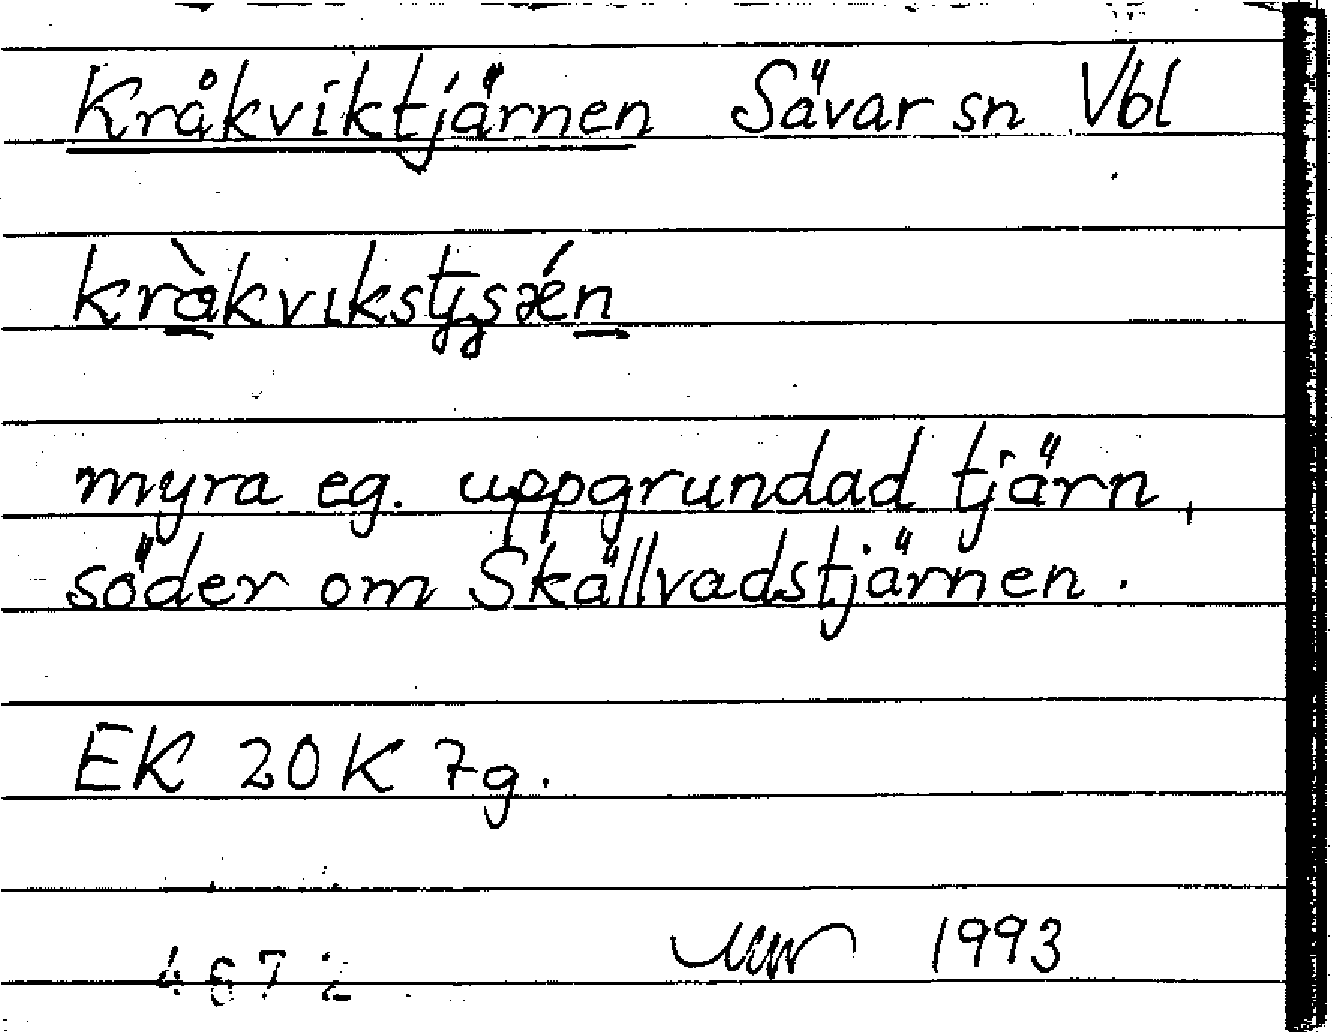 Kråkviktjärnen Sävar sn Vbl
kràkvıkstjsǽn
myra eg. uppgrundad tjärn,
söder om Skällvadstjärnen.
EK 20K 7g.
1993